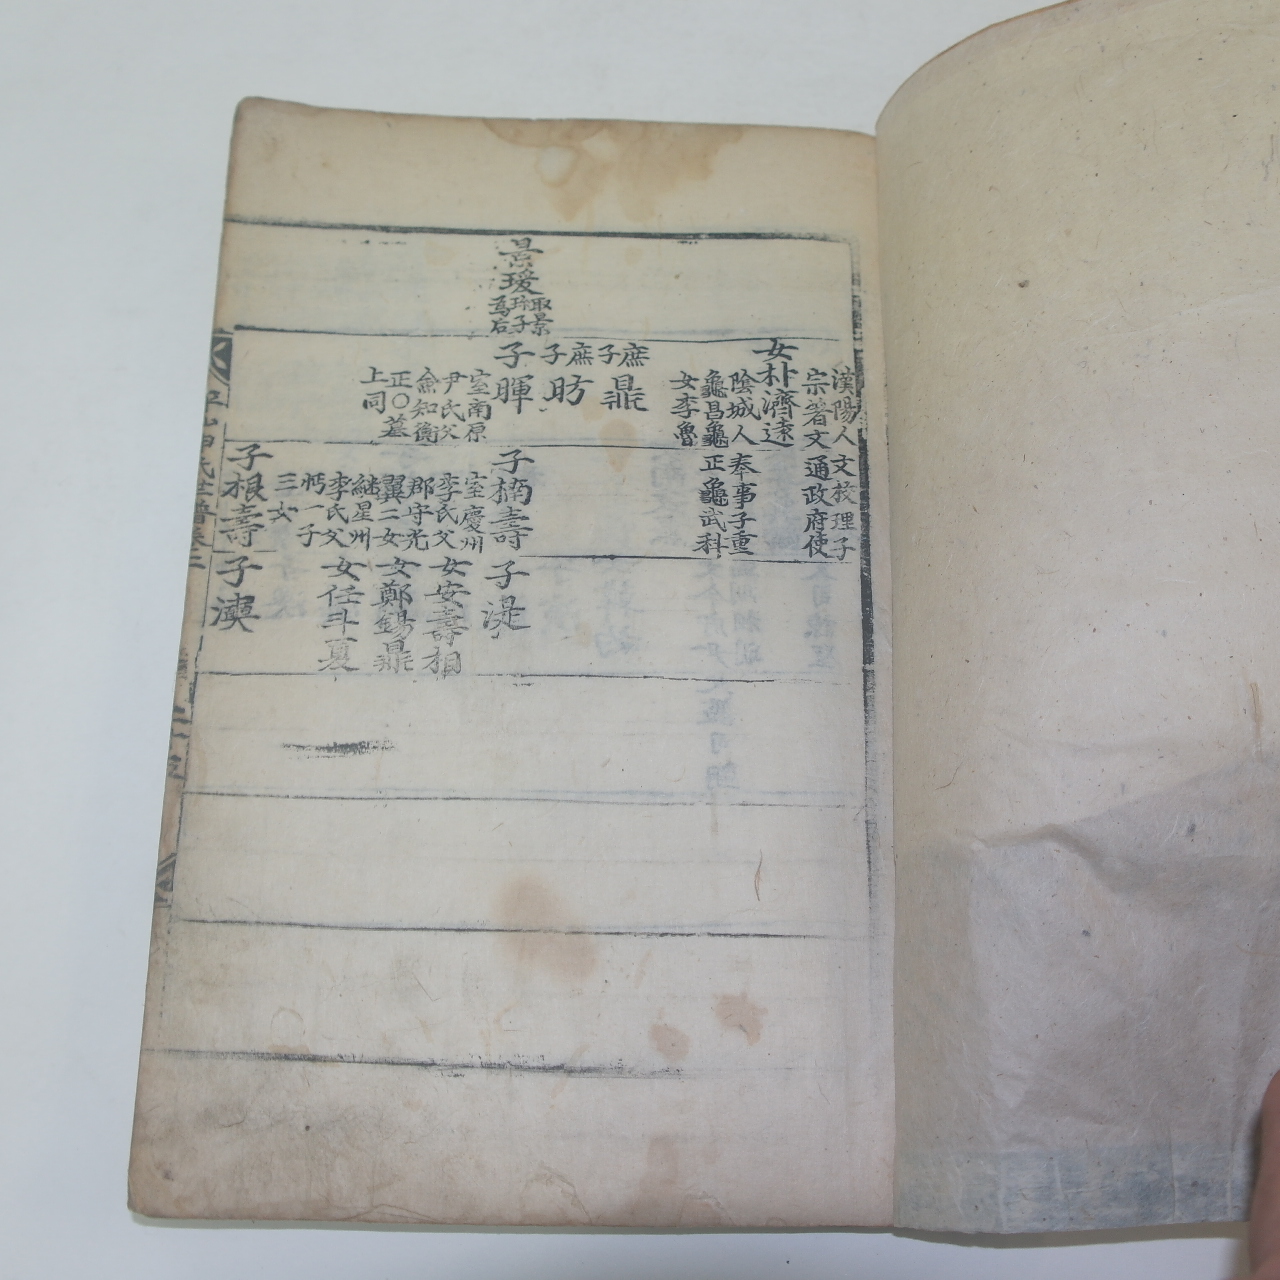 景瑗
取景
珍子
爲后
女朴濟遠
漢陽人文校理子
宗著文通政府使
陰城人奉事子重
龜昌龜正龜武科
女李魯
庶子鼎
庶子昉
子暉
室南原
尹氏父
僉知衡
正〇墓
上同
子楠壽
室慶州
李氏父
郡守光
翼二女
繼星州
李氏父
恦一子
三女
子根壽
子湜
女安壽相
女鄭錫鼎
女任斗夏
子
平山申氏世譜卷三